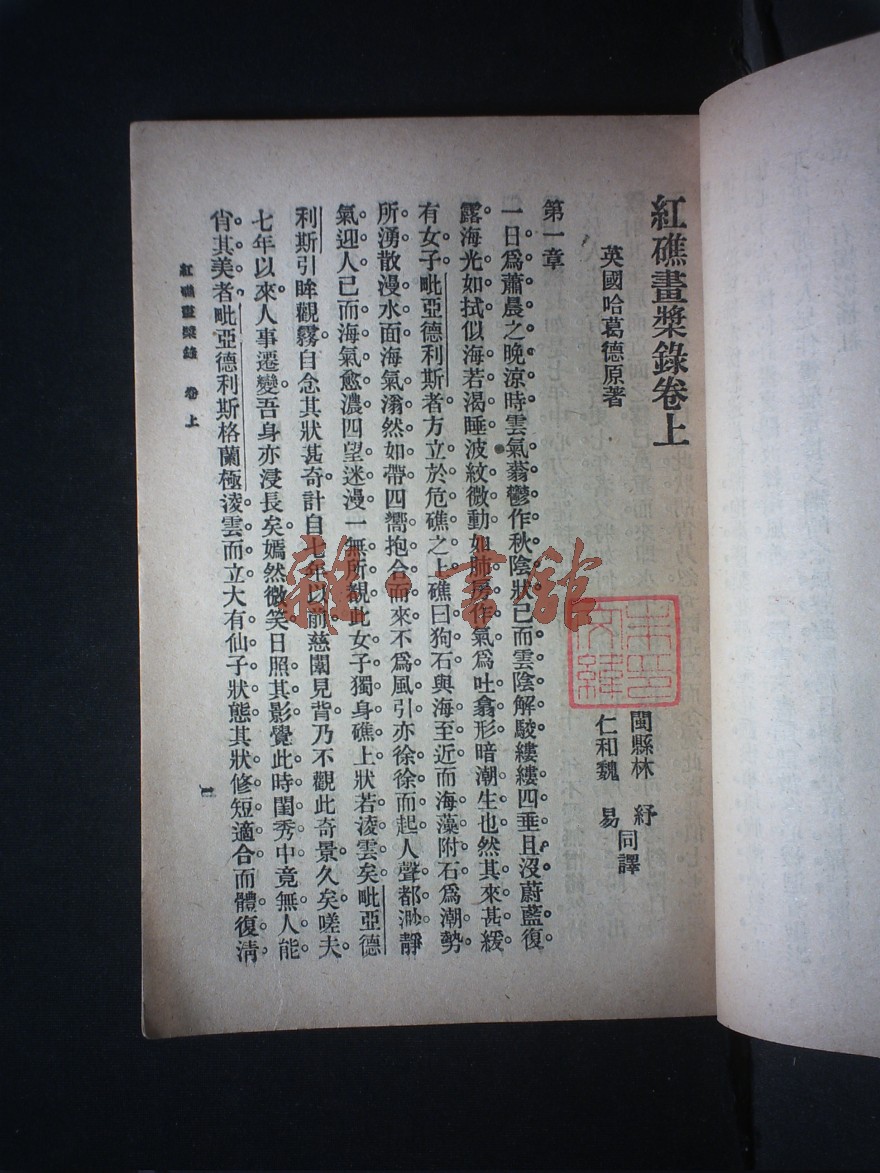 紅礁畫槳錄卷上
英國哈葛德原著
閩縣林　紓
仁和魏　易
同譯
第一章
一日爲蕭晨之晚涼時雲氣蓊鬱作秋陰狀已而雲陰解駮縷縷四垂且沒蔚藍復
露海光如拭似海若渴睡波紋微動如肺房作氣爲吐翕形暗潮生也然其來甚緩
有女子毗亞德利斯者方立於危礁之上礁曰狗石與海至近而海藻附石爲潮勢
所湧散漫水面海氣滃然如帶四嚮抱合而來不爲風引亦徐徐而起人聲都渺靜
氣迎人已而海氣愈濃四望迷漫一無所覩此女子獨身礁上狀若淩雲矣毗亞德
利斯引眸觀霧自念其狀甚奇計自七年以前慈闈見背乃不觀此奇景久矣嗟夫
七年以來人事遷變吾身亦浸長矣嫣然微笑日照其影覺此時閨秀中竟無人能
肖其美者毗亞德利斯格蘭極淩雲而立大有仙子狀態其狀修短適合而體復清
紅礁畫槳錄　卷上
一
雜·書館